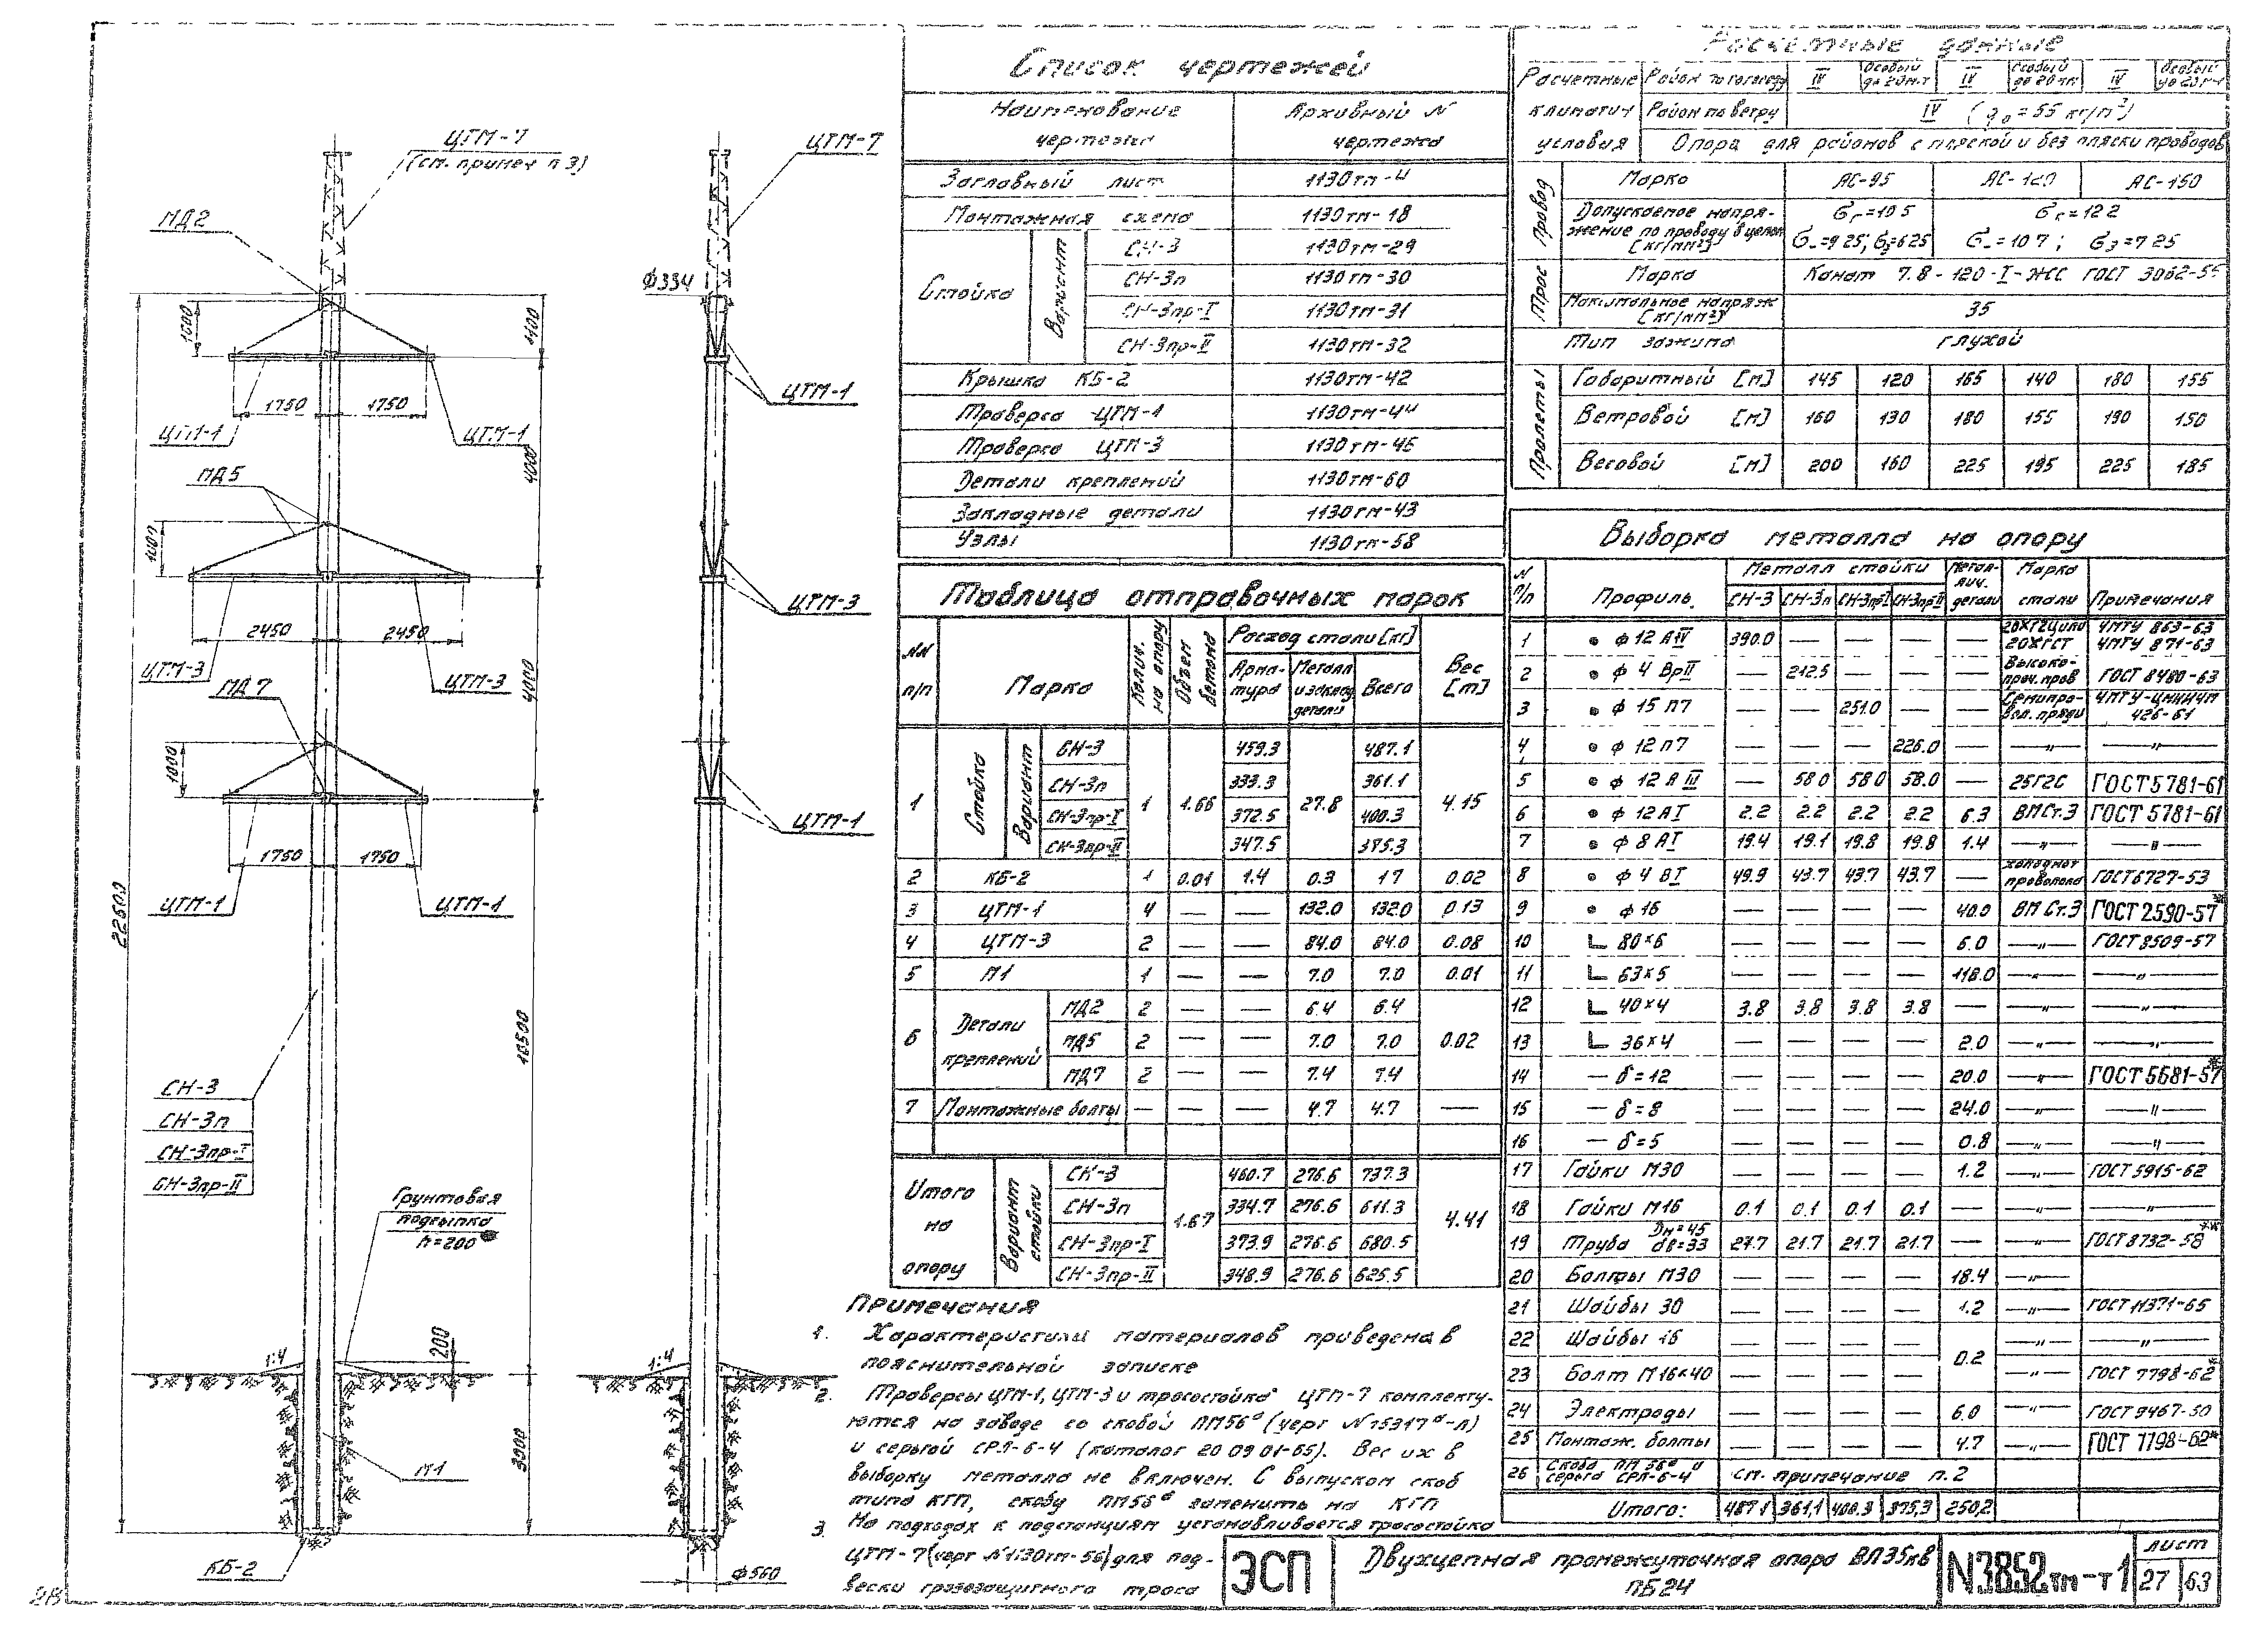 ЦТМ-7
(см. примеч п 3)
МД2
1000
1100
1750 1750
ЦТМ-1
ЦТМ-1
4000
МД5
1000
2450 2450
ЦТМ-3
ЦТМ-3
МД7
4000
1000
1750 1750
ЦТМ-1
ЦТМ-1
22600
10500
СН-3
СН-3п
СН-3пр-I
СН-3пр-II
Грунтовая
подсыпка
h=200
1:4
200
3000
М1
КБ-2
ЦТМ-7
ф334
ЦТМ-1
ЦТМ-3
ЦТМ-1
1:4
ф560
Список чертежей
Наименование чертежа Архивный N чертежа
Заглавный лист 1130тм-4
Монтажная схема 1130тм-18
Стойка Вариант СН-3 1130тм-29
СН-3п 1130тм-30
СН-3пр-I 1130тм-31
СН-3пр-II 1130тм-32
Крышка КБ-2 1130тм-42
Траверса ЦТМ-1 1130тм-44
Траверса ЦТМ-3 1130тм-46
Детали креплений 1130тм-60
Закладные детали 1130тм-43
Узлы 1130тм-58
Таблица отправочных марок
NN п/п Марка Колич. на опору Объем бетона Расход стали [кг] Вес [т]
Арматура Металл и заклад детали Всего
1 Стойка Вариант СН-3 1 1.66 459.3 27.8 487.1 4.15
СН-3п 333.3 361.1
СН-3пр-I 372.5 400.3
СН-3пр-II 347.5 375.3
2 КБ-2 1 0.01 1.4 0.3 17 0.02
3 ЦТМ-1 4 — — 132.0 132.0 0.13
4 ЦТМ-3 2 — — 84.0 84.0 0.08
5 М1 1 — — 7.0 7.0 0.01
6 Детали креплений МД2 2 — — 6.4 6.4 0.02
МД5 2 — — 7.0 7.0
МД7 2 — — 7.4 7.4
7 Монтажные болты — — — 4.7 4.7 —
Итого на опору Вариант стойки СН-3 1.67 460.7 276.6 737.3 4.41
СН-3п 334.7 276.6 611.3
СН-3пр-I 373.9 276.6 680.5
СН-3пр-II 348.9 276.6 625.5
Примечания
1. Характеристики материалов приведена в
пояснительной записке
2. Траверсы ЦТМ-1, ЦТМ-3 и тросостойка ЦТМ-7 комплекту-
ются на заводе со скобой ПМ56а (черт N15317а-л)
и серьгой СРЛ-6-4 (каталог 20 09 01-65). Вес их в
выборку металла не включен. С выпуском скоб
типа КГП, скобу ПМ56а заменить на КГП
3. На подходах к подстанциям устанавливается тросостойка
ЦТМ-7 (черт N1130тм-56) для под-
вески грозозащитного троса
Расчетные данные
Расчетные климатич условия Район по гололеду IV Особый до 20мм IV Особый до 20мм IV Особый до 20мм
Район по ветру IV (q₀=55 кг/м²)
Опора для районов с пляской и без пляски проводов
Провод Марка АС-95 АС-120 АС-150
Допускаемое напря-
жение по проводу в целом
[кг/мм²]
бг=10 5 бг=12 2
б-=9 25; бэ=6 25 б-=10 7; бэ=7 25
Трос Марка Канат 7.8-120-I-ЖСС ГОСТ 3062-55
Максимальное напряж [кг/мм²] 35
Тип зажима глухой
Пролеты Габаритный [м] 145 120 165 140 180 155
Ветровой [м] 160 130 180 155 190 150
Весовой [м] 200 160 225 195 225 185
Выборка металла на опору
N п/п Профиль Металл стойки Метал-лич. детали Марка стали Примечания
СН-3 СН-3п СН-3прI СН-3прII
1 ф 12 АIV 390.0 — — — — 20ХГ2Ц 20ХГСТ ЧМТУ 863-63 ЧМТУ 871-63
2 ф 4 ВрII — 212.5 — — — Высоко-проч. пров ГОСТ 8480-63
3 ф 15 П7 — — 251.0 — — Семипро-вол. пряди ЧМТУ-ЦНИИЧМ 426-61
4 ф 12 П7 — — — 226.0 — —"— —"—
5 ф 12 А III — 58 0 58 0 58.0 — 25Г2С ГОСТ 5781-61
6 ф 12 АI 2.2 2.2 2.2 2.2 6.3 ВМСт.3 ГОСТ 5781-61
7 ф 8 АI 19.4 19.1 19.8 19.8 1.4 —"— —"—
8 ф 4 ВI 49.9 43.7 43.7 43.7 — холоднот проволока ГОСТ 6727-53
9 ф 16 — — — — 40.0 ВМ Ст.3 ГОСТ 2590-57*
10 ∟ 80×6 — — — — 6.0 —"— ГОСТ 8509-57
11 ∟ 63×5 — — — — 118.0 —"— —"—
12 ∟ 40×4 3.8 3.8 3.8 3.8 — —"— —"—
13 ∟ 36×4 — — — — 2.0 —"— —"—
14 — δ=12 — — — — 20.0 —"— ГОСТ 5681-57*
15 — δ=8 — — — — 24.0 —"— —"—
16 — δ=5 — — — — 0.8 —"— —"—
17 Гайки М30 — — — — 1.2 —"— ГОСТ 5915-62
18 Гайки М16 0.1 0.1 0.1 0.1 — —"— —"—
19 Труба Dн=45 dв=33 21.7 21.7 21.7 21.7 — —"— ГОСТ 8732-58**
20 Болты М30 — — — — 18.4 —"—
21 Шайбы 30 — — — — 1.2 —"— ГОСТ 11371-65
22 Шайбы 16 — — — — 0.2 —"— —"—
23 Болт М16×40 — — — — —"— ГОСТ 7798-62*
24 Электроды — — — — 6.0 —"— ГОСТ 9467-60
25 Монтаж. болты — — — — 4.7 —"— ГОСТ 7798-62*
26 Скоба ПМ 56а и серьга СРЛ-6-4 см. примечание п. 2
Итого: 487.1 361,1 400.3 375,3 250,2
ЭСП
Двухцепная промежуточная опора ВЛ35кв
ПБ24
N3852тм-т1
лист
27 63
28